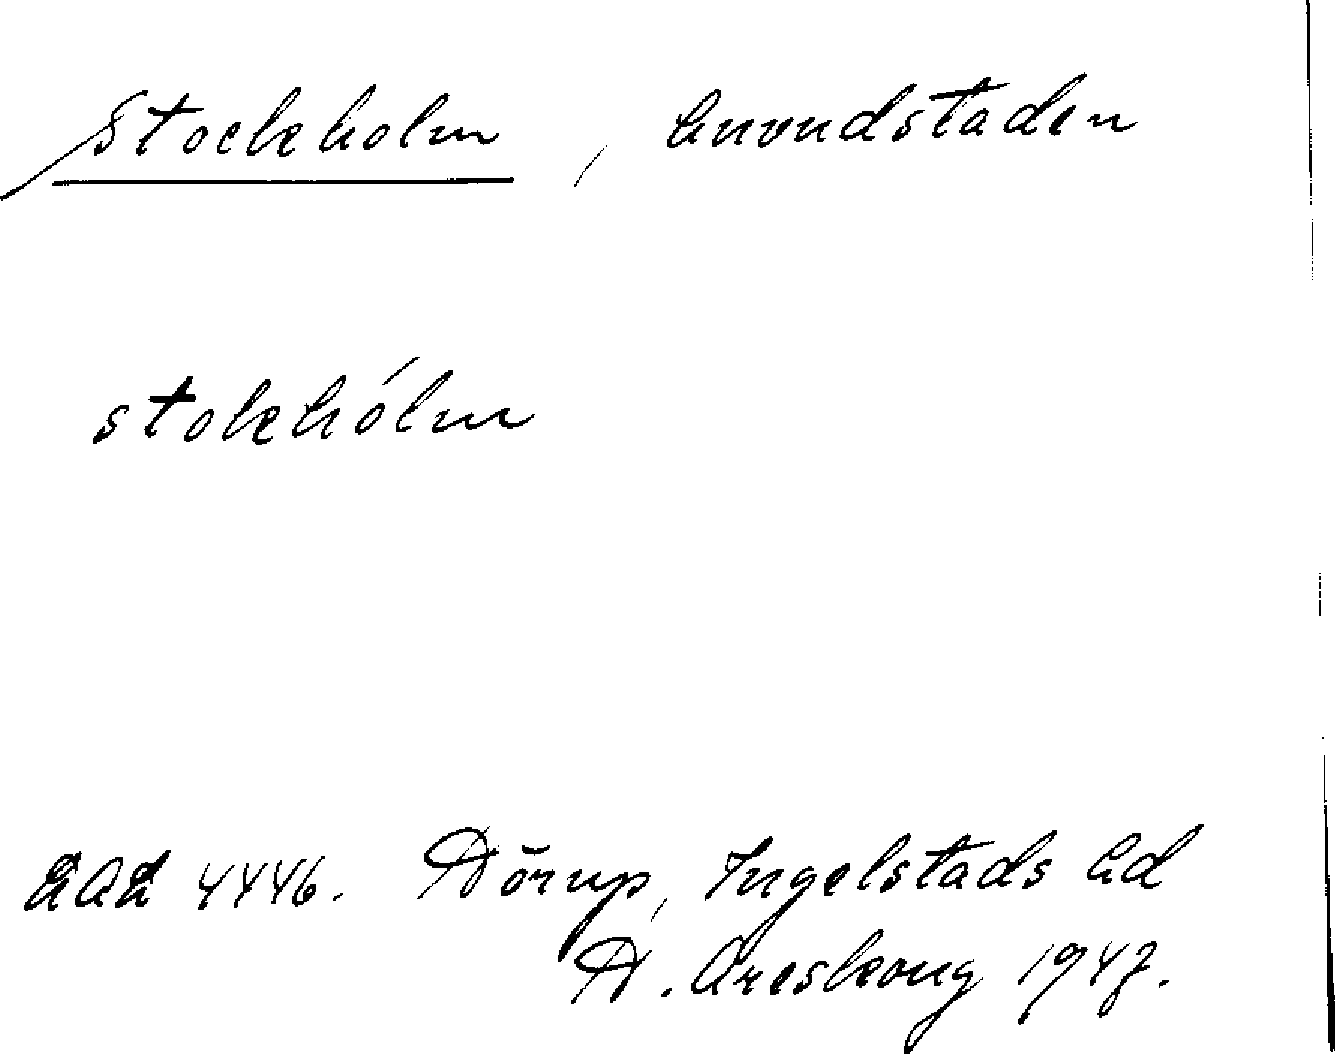 Stockholm, huvudstaden
stokhólm
LAL 4446. Dörup, Ingelstads hd
D. Areskoug 1947.